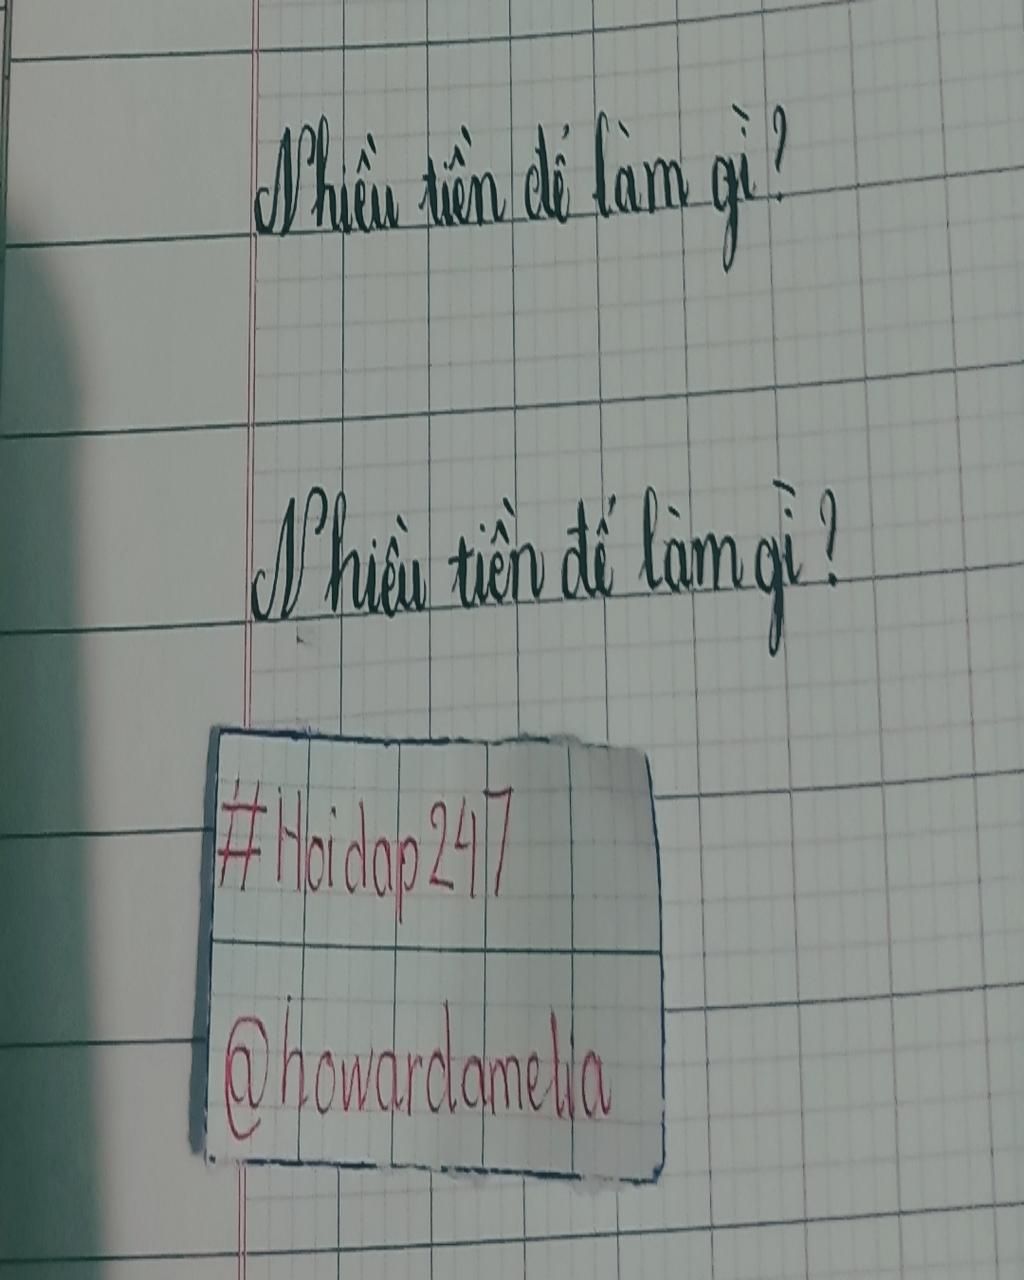 Nhiều tiền để làm gì?
Nhiều tiền để làm gì?
#Hoidap247
@howardamelia